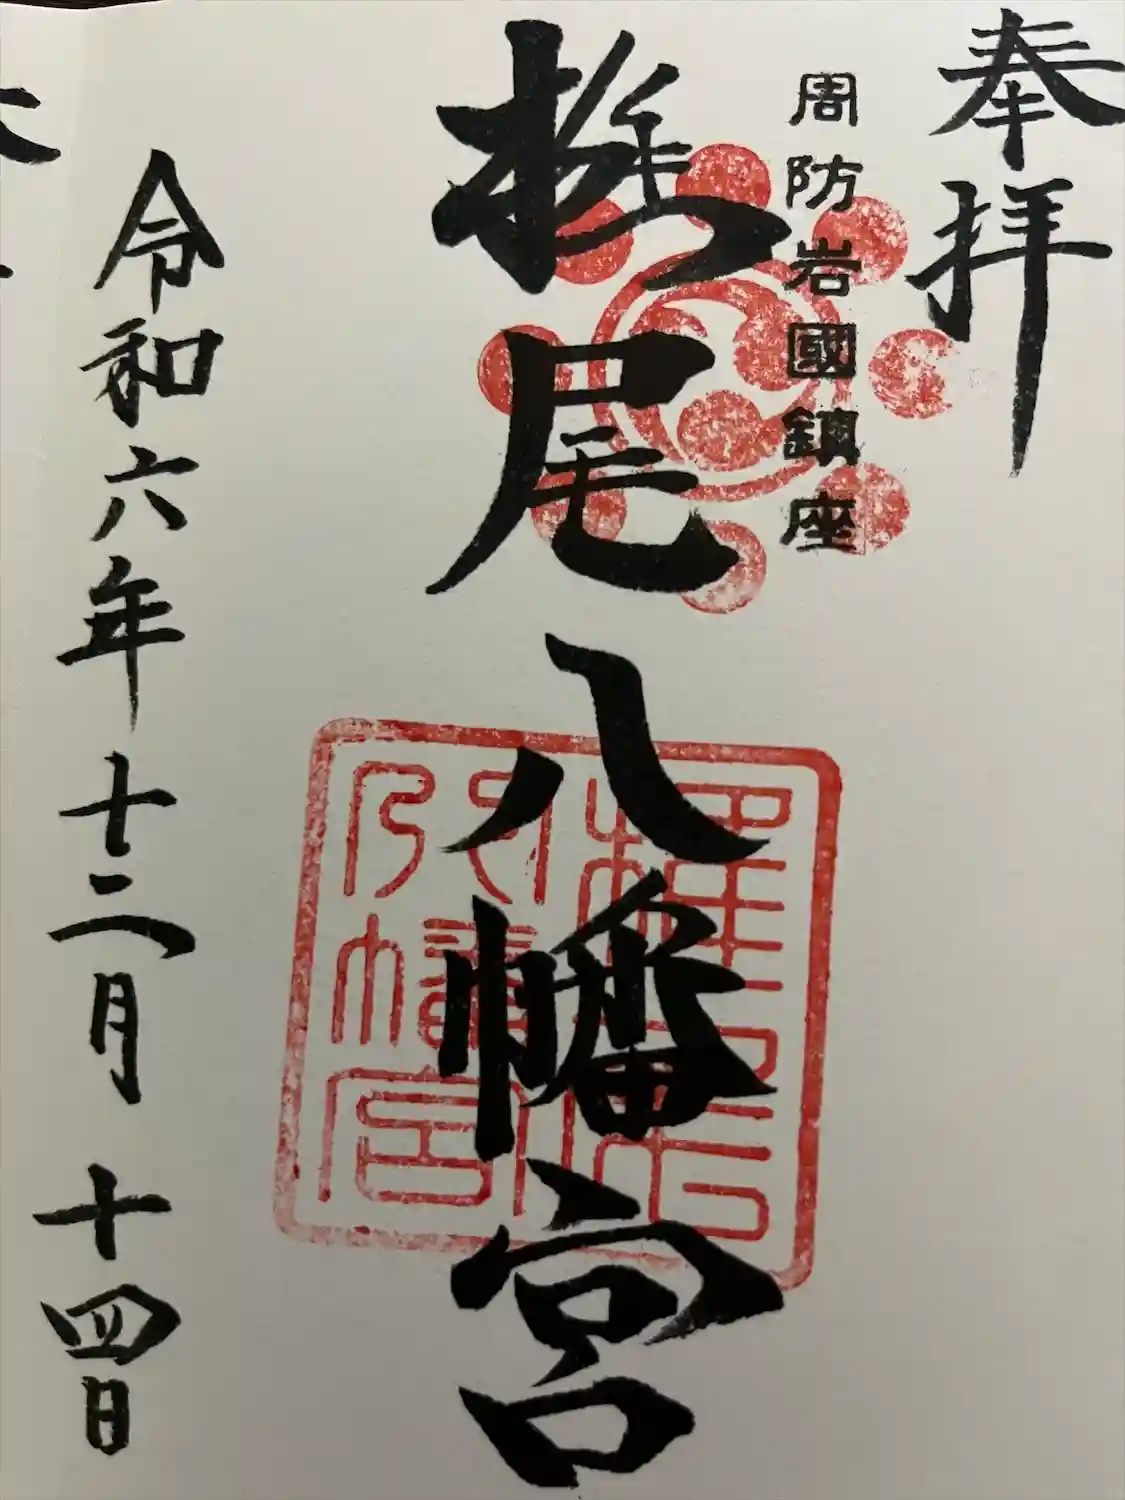 奉拝
周防岩國鎮座
椎尾八幡宮
椎尾八幡宮
令和六年十二月十四日